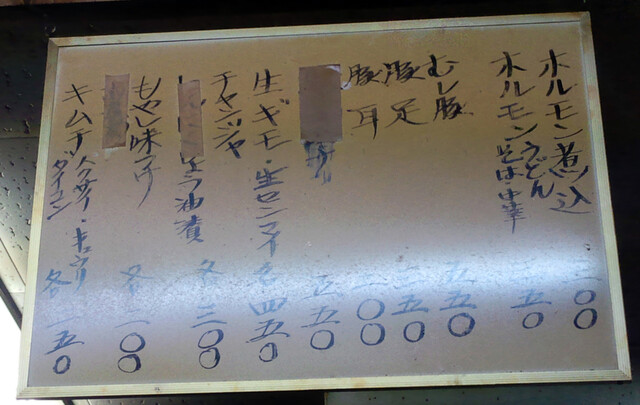 ホルモン煮込 三〇〇
ホルモンうどん
そば・中華 三五〇
むし豚 五五〇
豚足 二五〇
豚耳 三〇〇
五五〇
生ギモ・生センマイ 各四五〇
チャンジャ
しょう油漬 各三〇〇
もやし味つけ 各二〇〇
キムチ ハクサイ・キュウリ
ダイコン 各二五〇